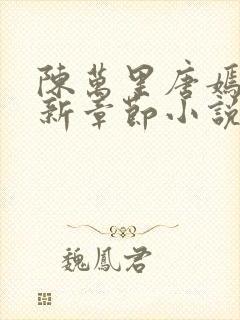 陳萬里唐嫣
新章節小說
魏鳳君